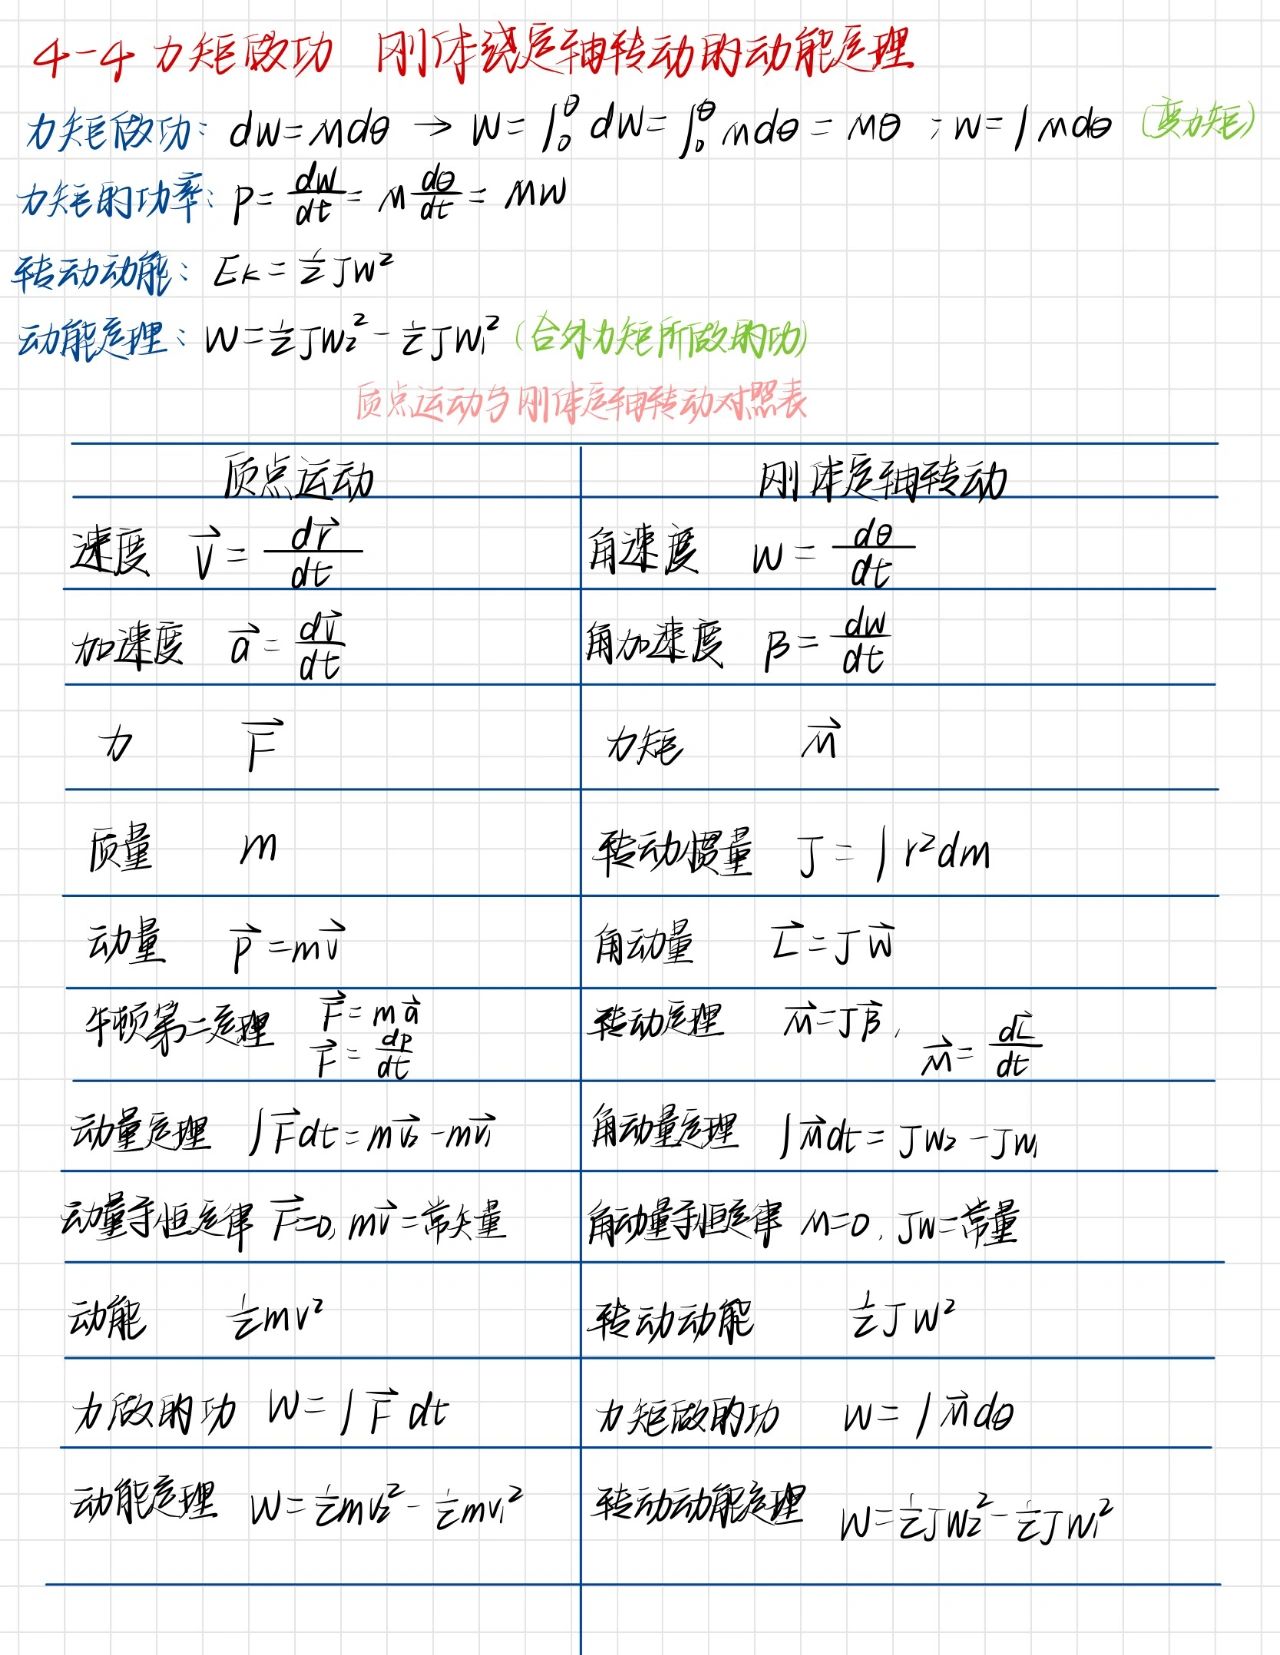 4-4 力矩做功 刚体绕定轴转动的动能定理
力矩做功: dW=Mdθ → W=∫₀^θ dW=∫₀^θ Mdθ=Mθ ; W=∫Mdθ (变力矩)
力矩的功率: P=dW/dt=M dθ/dt=Mω
转动动能: Eₖ=½Jω²
动能定理: W=½Jω₂²-½Jω₁² (合外力矩所做的功)
质点运动与刚体定轴转动对照表
质点运动 刚体定轴转动
速度 v⃗=dr⃗/dt 角速度 ω=dθ/dt
加速度 a⃗=dv⃗/dt 角加速度 β=dω/dt
力 F⃗ 力矩 M⃗
质量 m 转动惯量 J=∫r²dm
动量 p⃗=mv⃗ 角动量 L⃗=Jω⃗
牛顿第二定理 F⃗=ma⃗ F⃗=dp/dt 转动定理 M⃗=Jβ⃗, M⃗=dL⃗/dt
动量定理 ∫F⃗dt=mv⃗₂-mv⃗₁ 角动量定理 ∫M⃗dt=Jω₂-Jω₁
动量守恒定律 F⃗=0, mv⃗=常矢量 角动量守恒定律 M=0, Jω=常量
动能 ½mv² 转动动能 ½Jω²
力做的功 W=∫F⃗dt 力矩做的功 W=∫M⃗dθ
动能定理 W=½mv₂²-½mv₁² 转动动能定理 W=½Jω₂²-½Jω₁²